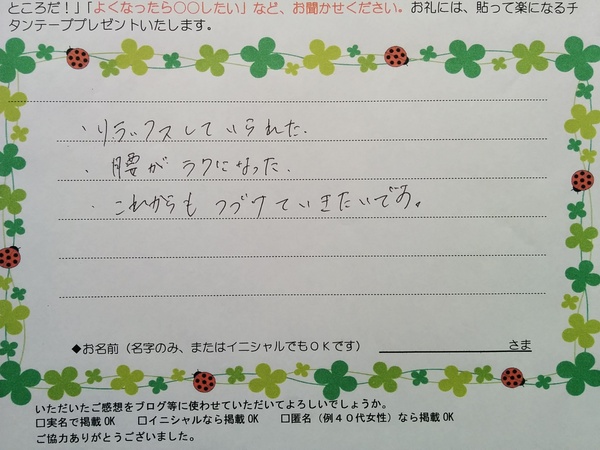 ところだ！」「よくなったら〇〇したい」など、お聞かせください。お礼には、貼って楽になるチ
タンテーププレゼントいたします。
・リラックスしていられた.
・腰がラクになった.
・これからもつづけていきたいです。
◆お名前（名字のみ、またはイニシャルでもＯＫです） さま
いただいたご感想をブログ等に使わせていただいてよろしいでしょうか。
□実名で掲載 OK □イニシャルなら掲載 OK □匿名（例４０代女性）なら掲載 OK
ご協力ありがとうございました。